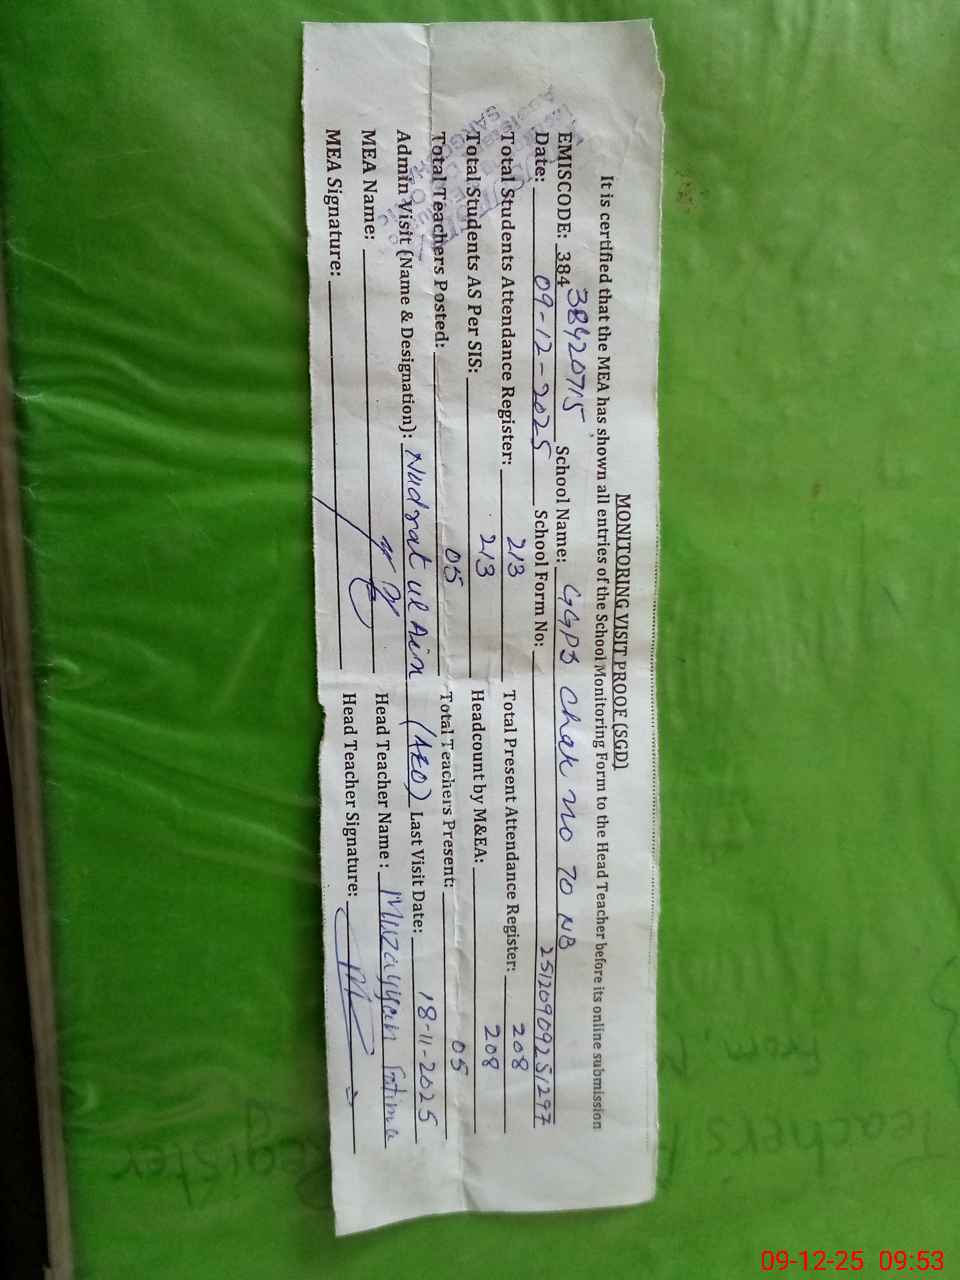 MONITORING VISIT PROOF (SGD)
It is certified that the MEA has shown all entries of the School Monitoring Form to the Head Teacher before its online submission
EMISCODE: 384 38420715 School Name: GGPS Chak no 70 NB
Date: 09-12-2025 School Form No: 25120909251297
Total Students Attendance Register: 213 Total Present Attendance Register: 208
Total Students AS Per SIS: 213 Headcount by M&EA: 208
Total Teachers Posted: 05 Total Teachers Present: 05
Admin Visit (Name & Designation): Nudrat ul Ain (AEO) Last Visit Date: 18-11-2025
MEA Name: Head Teacher Name: Muzayyan Fatima
MEA Signature: Head Teacher Signature:
Teachers
Register
From,
09-12-25 09:53